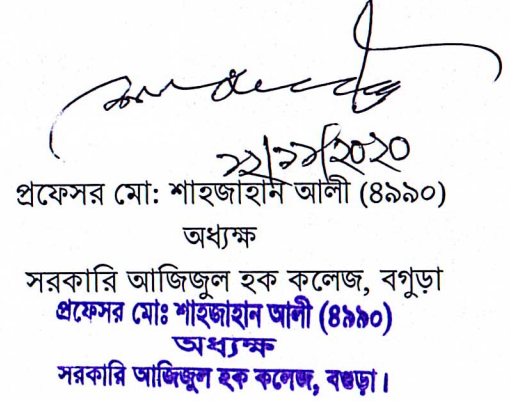 ১২/১১/২০২০
প্রফেসর মো: শাহজাহান আলী (৪৯৯০)
অধ্যক্ষ
সরকারি আজিজুল হক কলেজ, বগুড়া
প্রফেসর মোঃ শাহজাহান আলী (৪৯৯০)
অধ্যক্ষ
সরকারি আজিজুল হক কলেজ, বগুড়া।